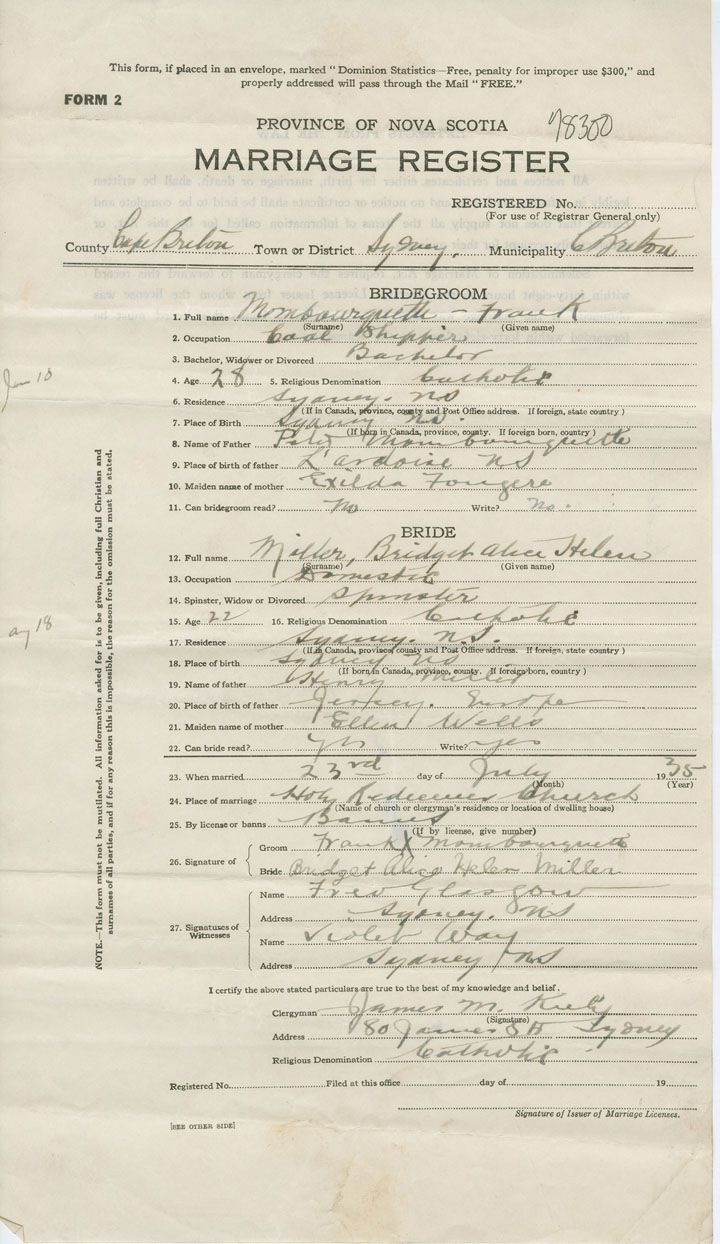 This form, if placed in an envelope, marked "Dominion Statistics—Free, penalty for improper use $300," and
properly addressed will pass through the Mail "FREE."
FORM 2
PROVINCE OF NOVA SCOTIA 78300
MARRIAGE REGISTER
REGISTERED No.
(For use of Registrar General only)
County Cape Breton Town or District Sydney. Municipality C Breton
BRIDEGROOM
1. Full name Mombourquette - Frank
(Surname) (Given name)
2. Occupation Coal Shipper
3. Bachelor, Widower or Divorced Bachelor
4. Age 28 5. Religious Denomination Catholic
6. Residence Sydney. NS
(If in Canada, province, county and Post Office address. If foreign, state country)
7. Place of Birth Sydney NS
(If born in Canada, province, county. If foreign born, country)
8. Name of Father Mombourquette
9. Place of birth of father L'ardoise NS
10. Maiden name of mother Exilda Fougere
11. Can bridegroom read? No Write? No.
BRIDE
12. Full name Miller, Bridget Alice Helen
(Surname) (Given name)
13. Occupation Domestic
14. Spinster, Widow or Divorced Spinster
15. Age 22 16. Religious Denomination Catholic
17. Residence Sydney. N.S.
(If in Canada, province, county and Post Office address. If foreign, state country)
18. Place of birth Sydney NS
(If born in Canada, province, county. If foreign born, country)
19. Name of father Henry Miller
20. Place of birth of father Jersey. Europe
21. Maiden name of mother Ellen Wells
22. Can bride read? yes Write? yes
23. When married 23rd day of July 1935
(Month) (Year)
24. Place of marriage Holy Redeemer Church
(Name of church or clergyman's residence or location of dwelling house)
25. By license or banns Banns
(If by license, give number)
26. Signature of
Groom Frank X Mombourquette
Bride Bridget Alice Helen Miller
27. Signatures of Witnesses
Name Fred Glasgow
Address Sydney. NS
Name Violet Way
Address Sydney NS
I certify the above stated particulars are true to the best of my knowledge and belief.
Clergyman James M. Kiely
(Signature)
Address 80 James St Sydney
Religious Denomination Catholic
Registered No. Filed at this office day of 19
Signature of Issuer of Marriage Licenses.
[SEE OTHER SIDE]
NOTE.—This form must not be mutilated. All information asked for is to be given, including full Christian and
surnames of all parties, and if for any reason this is impossible, the reason for the omission must be stated.